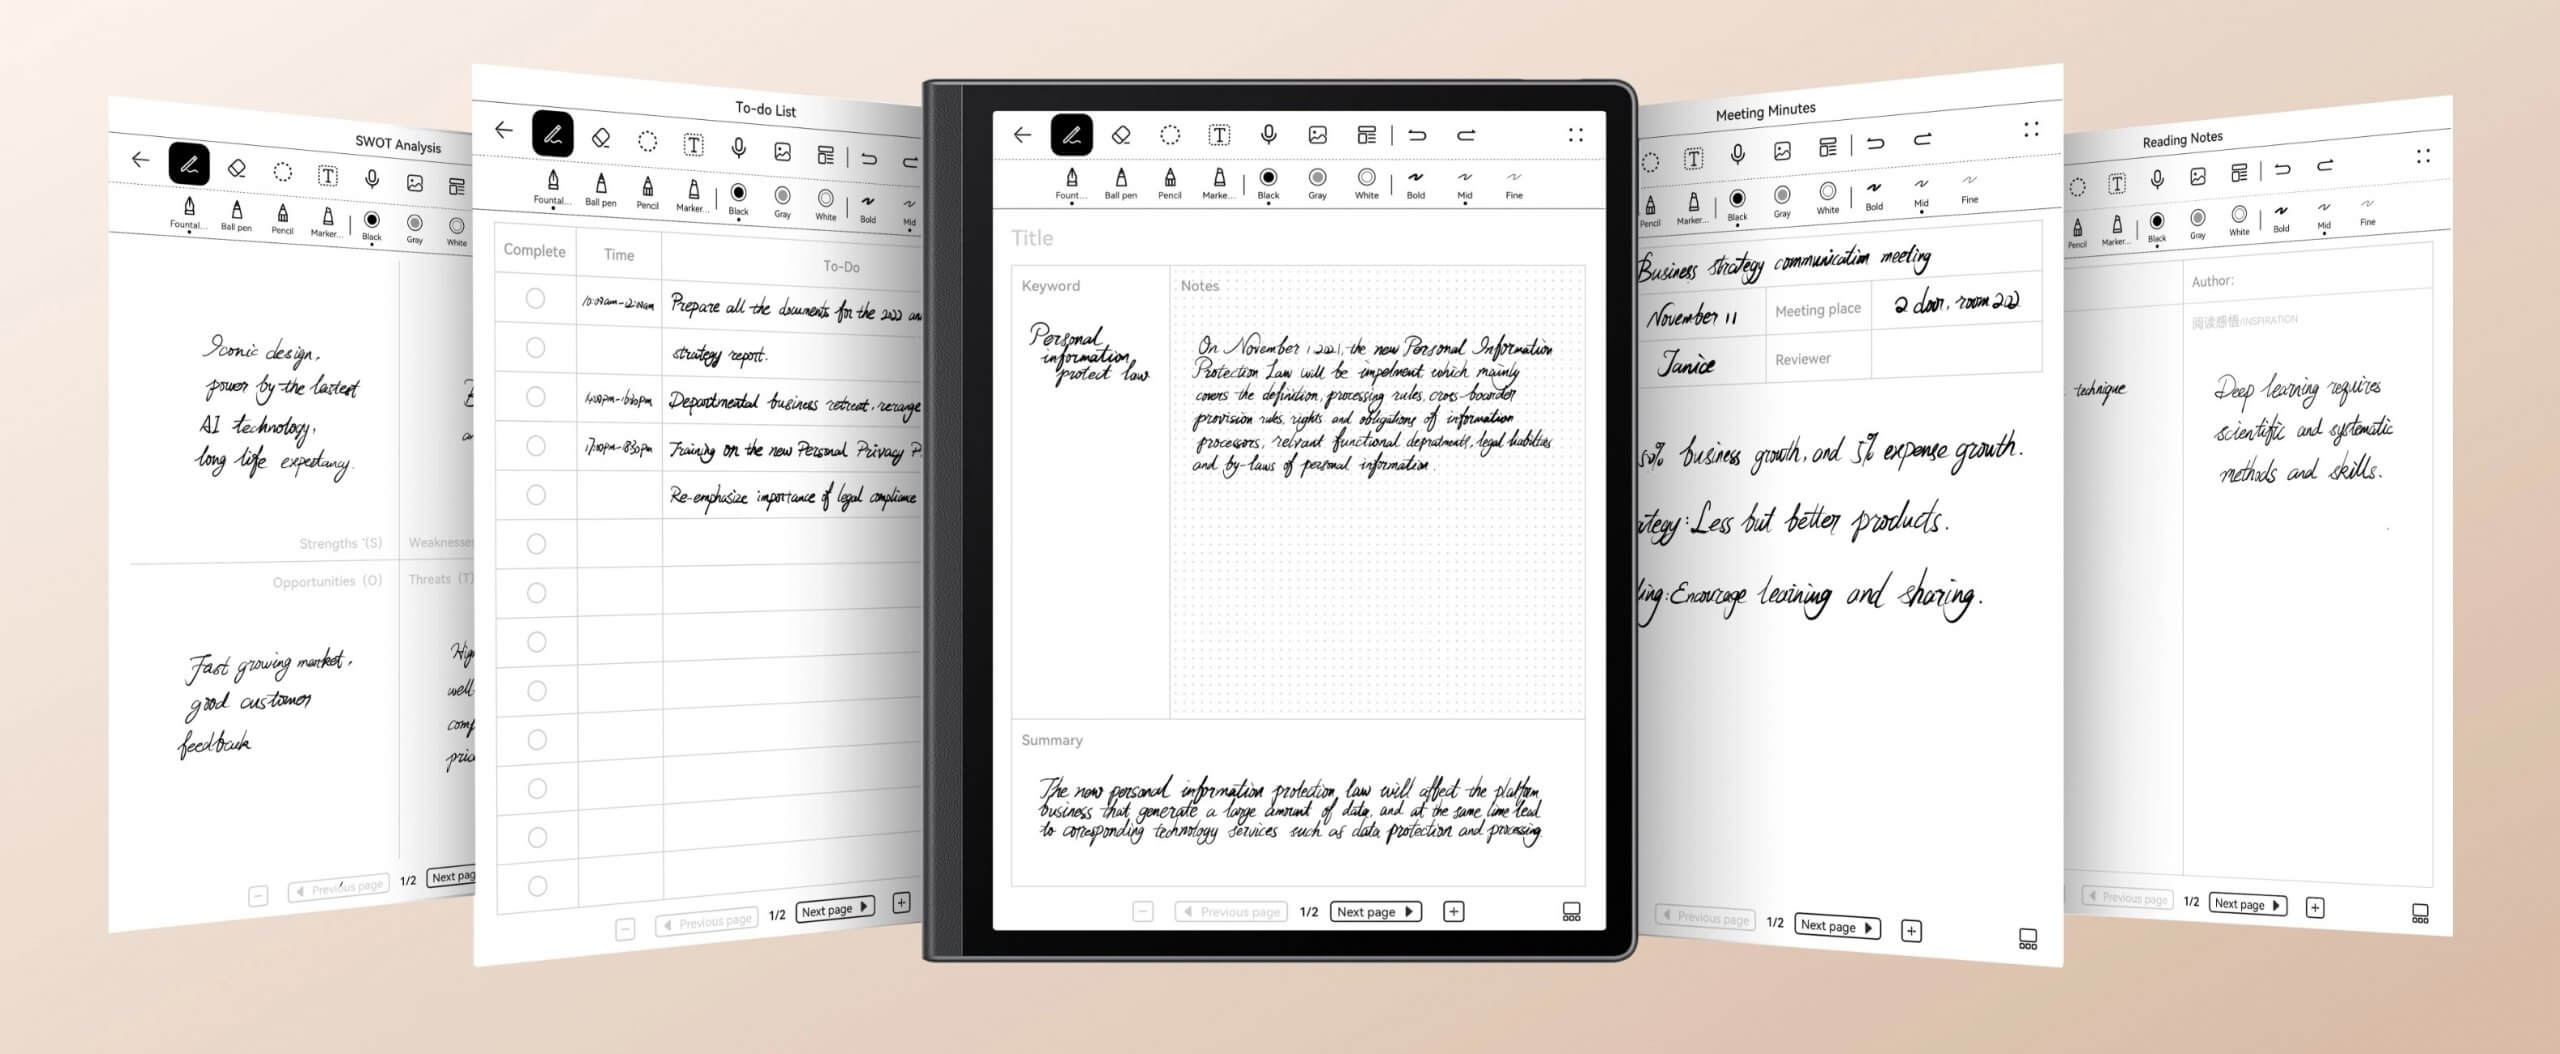 SWOT Analysis
Fountai...
Ball pen
Pencil
Marker...
Black
Gray
White
Iconic design,
power by the lastest
AI technology,
long life expectancy.
Strengths (S)
Weaknesse
Opportunities (O)
Threats (T)
Fast growing market,
good customer
feedback
Hig
well-
comp
pric
Previous page
1/2
Next pag
To-do List
Fountai...
Ball pen
Pencil
Marker...
Black
Gray
White
Bold
Mid
Complete
Time
To-Do
Prepare all the documents for the 2022 an
strategy report.
Departmental business retreat, rerange
Training on the new Personal Privacy P
Re-emphasize importance of legal compliance
Previous page
1/2
Next page
Fount...
Ball pen
Pencil
Marke...
Black
Gray
White
Bold
Mid
Fine
Title
Keyword
Notes
Personal
information
protect law
On November 1 2021, the new Personal Information
Protection Law will be impelment which mainly
covers the definition, processing rules, cross-boarder
provision rules, rights and obligations of information
processors, relevant functional depratments, legal liabilities
and by-laws of personal information.
Summary
The new personal information protection law will affect the platform
business that generate a large amount of data, and at the same time lead
to corresponding technology services such as data protection and processing.
Previous page
1/2
Next page
Meeting Minutes
Pencil
Marker...
Black
Gray
White
Bold
Mid
Fine
Business strategy communication meeting
November 11
Meeting place
2 door, room 202
Janice
Reviewer
50% business growth, and 5% expense growth.
ategy: Less but better products.
ing: Encourage learning and sharing.
Previous page
1/2
Next page
Reading Notes
Pencil
Marker...
Black
Gray
White
Bold
Mid
Fine
Author:
阅读感悟/INSPIRATION
technique
Deep learning requires
scientific and systematic
methods and skills.
Previous page
1/2
Next page